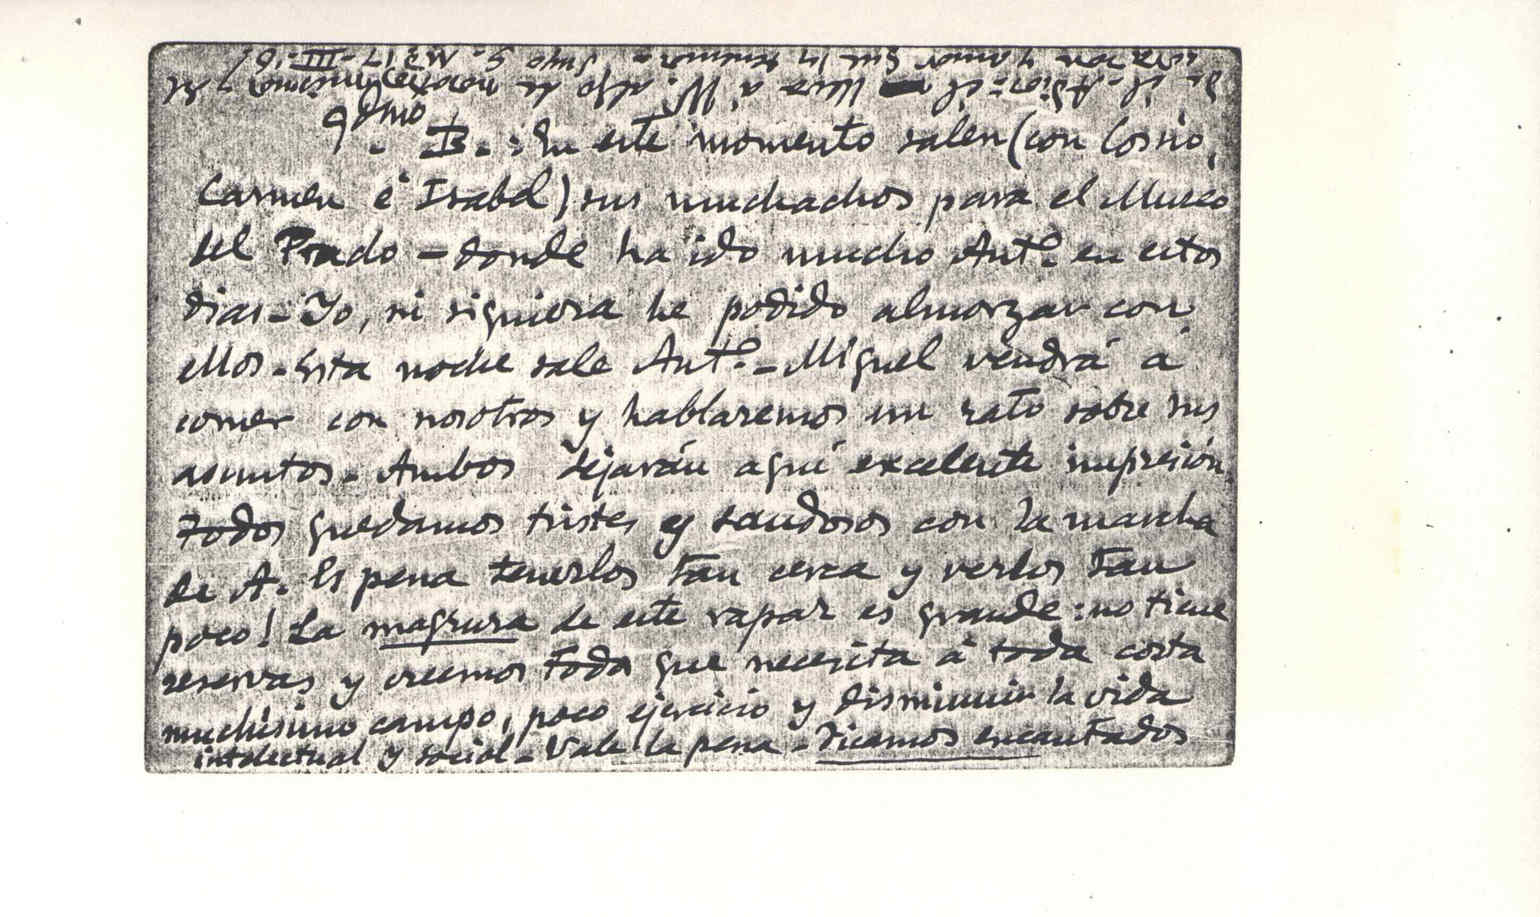 Qdmo
B.: En este momento salen (con Cossío,
Carmen é Isabel) sus muchachos para el Museo
del Prado — donde ha ido mucho Antº. en estos
dias — Yo, ni siquiera he podido almorzar con
ellos. Esta noche sale Antº. — Miguel vendrá á
comer con nosotros y hablaremos un rato sobre sus
asuntos. Ambos dejarán aquí excelente impresión.
Todos quedamos tristes y saudosos con la marcha
de A. Es pena tenerlos tan cerca y verlos tan
poco! La magrura de este rapaz es grande: no tiene
reservas y creemos todos que necesita á toda costa
muchísimo campo, poco ejercicio y disminuir la vida
intelectual y social — Vale la pena — Ficamos encantados
de él — Adios: él lleva á Mr. algo de
suyo G. — M. 17-III-